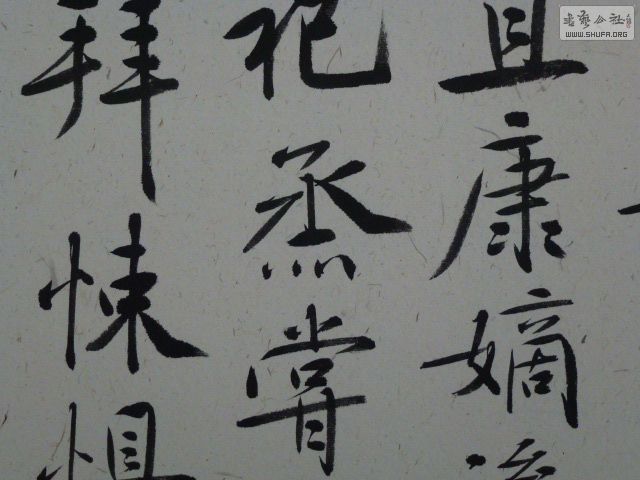 書藝公社
WWW.SHUFA.ORG
且康嫡
祀烝嘗
拜悚懼